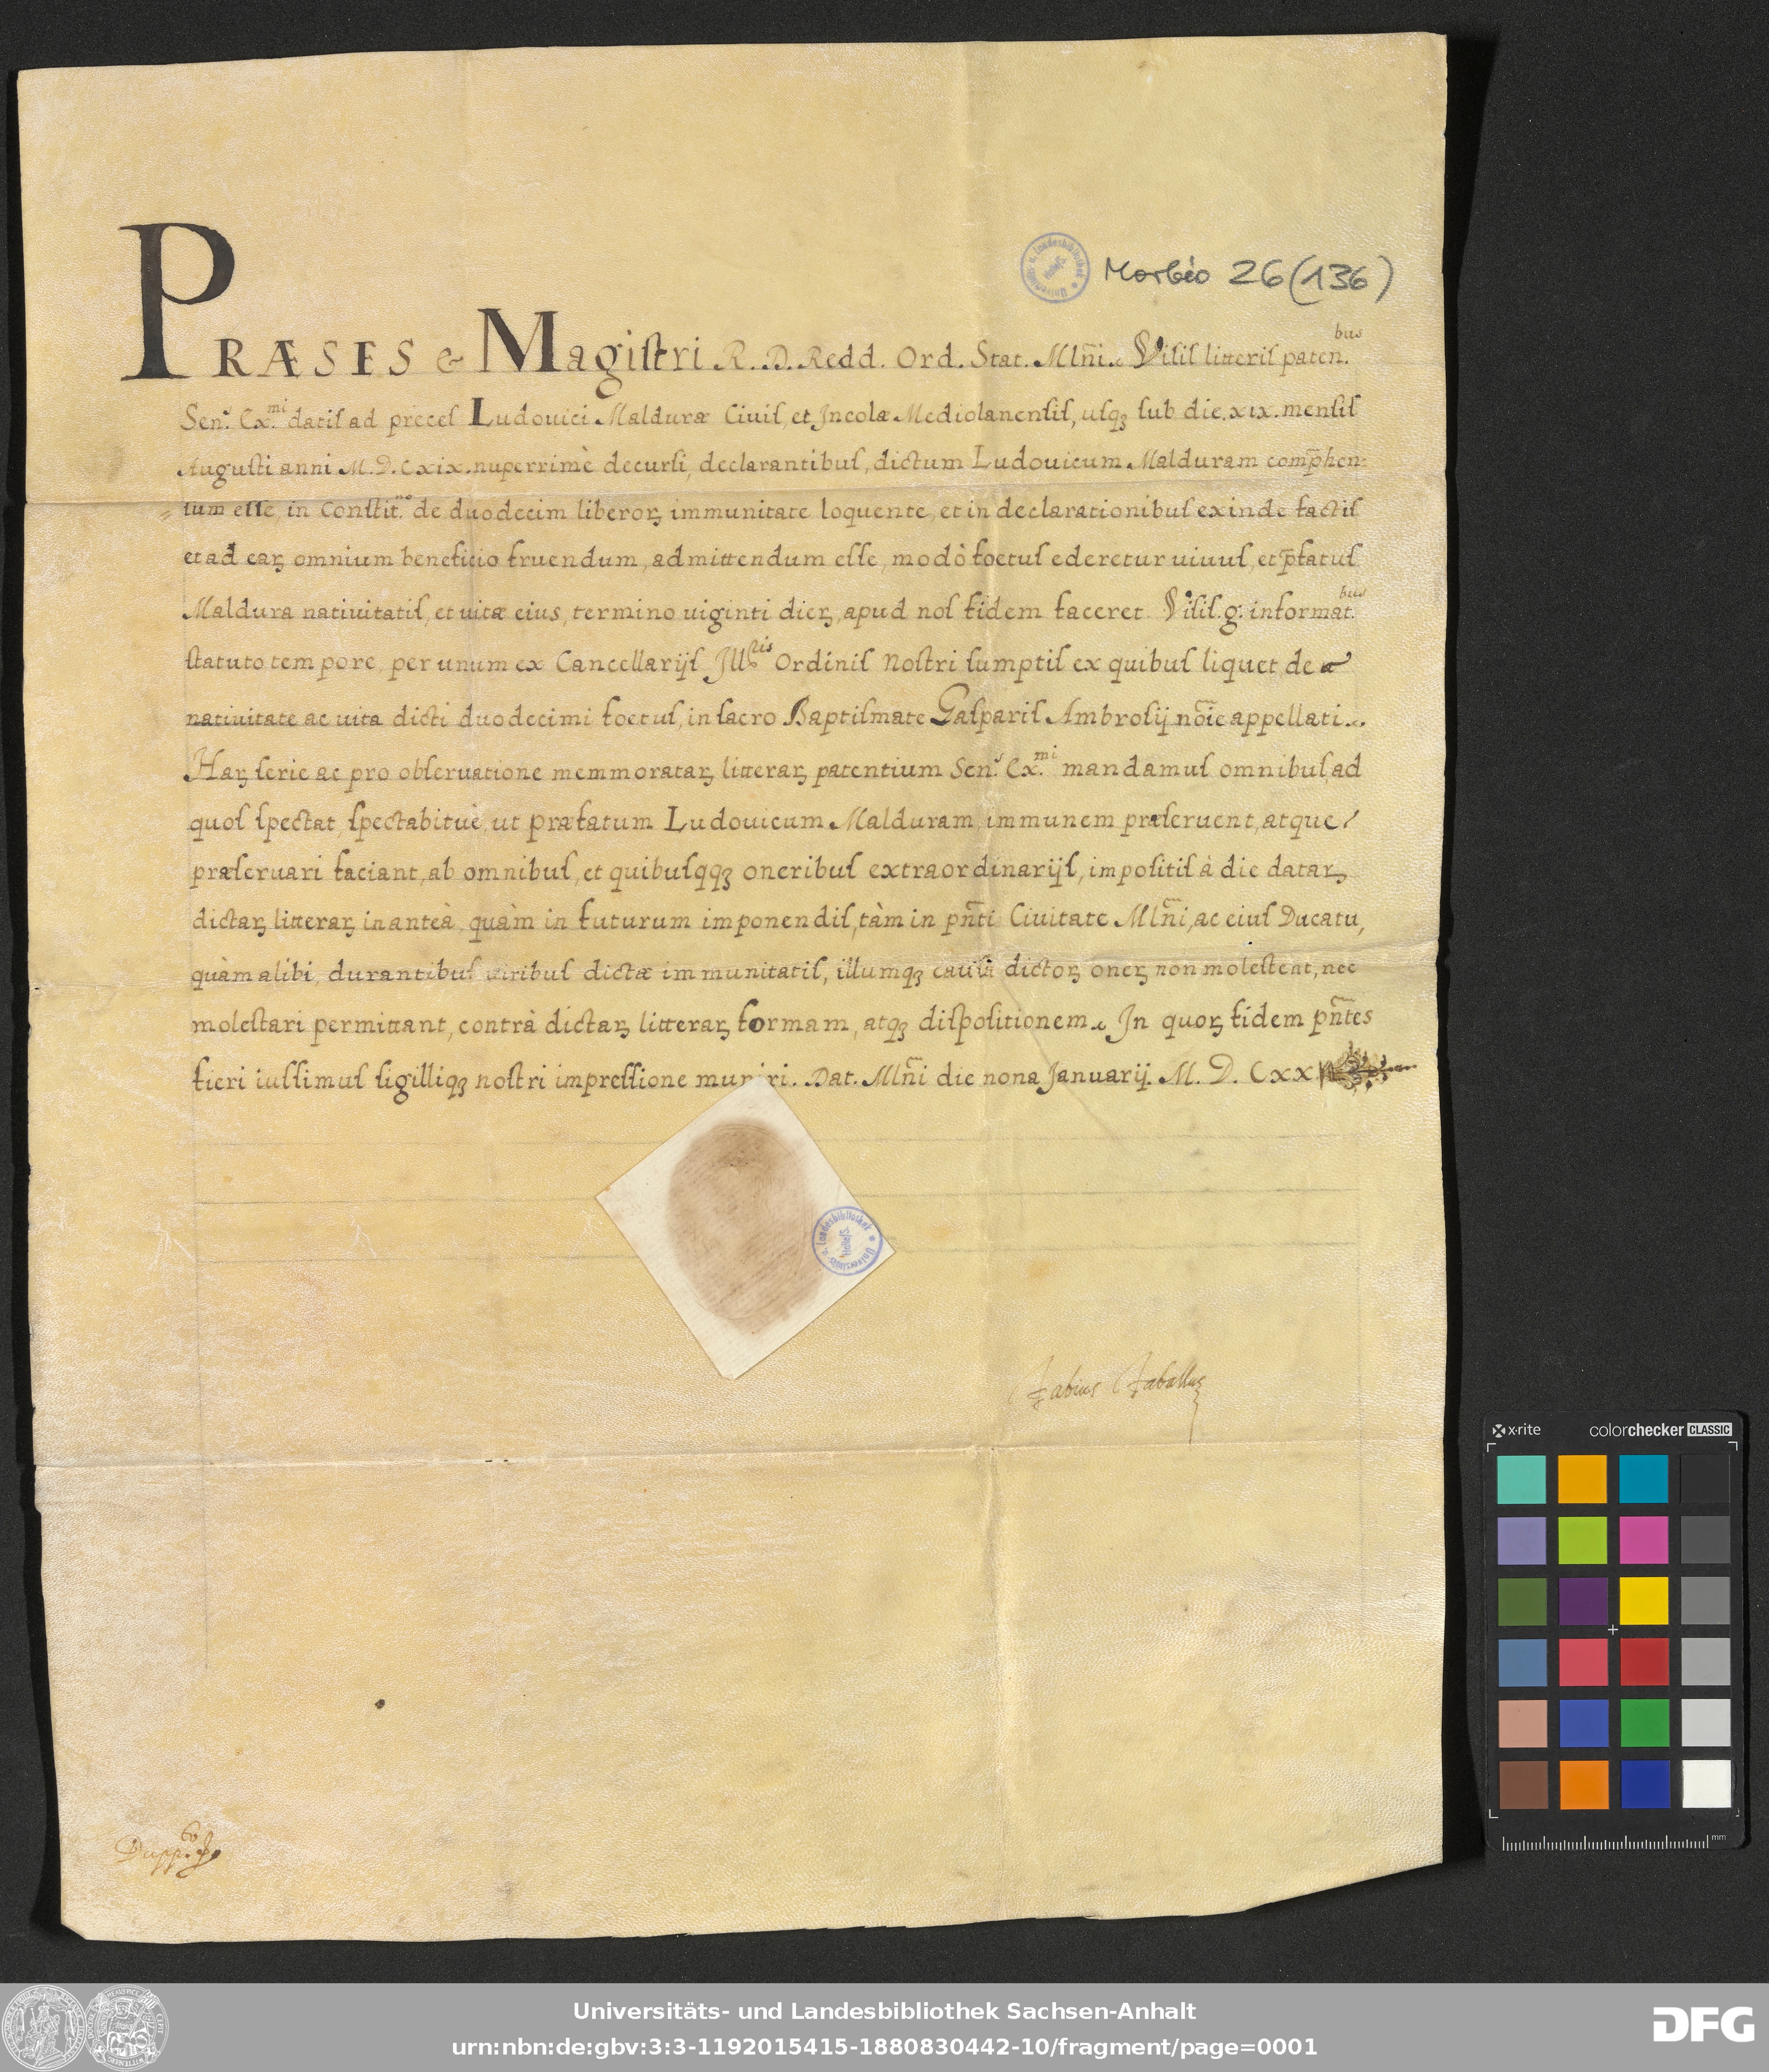 Morbio 26 (136)
PRÆSES & Magiſtri R. D. Redd. Ord. Stat. Mln̄i. Viſiſ litteriſ paten.bus
Sen.ˢ Ex.mi datiſ ad preceſ Ludouici Malduræ Ciuiſ, et Incolæ Mediolanenſiſ, uſqꝫ ſub die. xıx. menſiſ
Auguſti anni M. D. Cxix. nuperrimè decurſi, declarantibuſ, dictum Ludouicum Malduram comp̄hen=
=ſum eſſe in Conſtit.ne de duodecim liberoꝝ immunitate loquente, et in declarationibuſ exinde factiſ
et ad eaꝝ omnium beneficio fruendum, admittendum eſſe, modò foetuſ ederetur uiuuſ, et p̄fatuſ
Maldura natiuitatiſ, et uitæ eius, termino uiginti dieꝝ, apud noſ fidem faceret. Viſiſ. g. informat.bus
ſtatuto tempore, per unum ex Cancellarijſ Ill.tis Ordiniſ noſtri ſumptiſ ex quibuſ liquet de
natiuitate ac uita dicti duodecimi foetuſ, in ſacro Baptiſmate Gaſpariſ Ambroſij no͞ie appellati.
Haꝝ ſerie ac pro obſeruatione memmorataꝝ litteraꝝ patentium Sen.ˢ Ex.mi mandamuſ omnibuſ, ad
quoſ ſpectat, ſpectabituè, ut præfatum Ludouicum Malduram immunem præſeruent, atque
præſeruari faciant, ab omnibuſ, et quibuſqqꝫ oneribuſ extraordinarijſ, impoſitiſ à die dataꝝ
dictaꝝ litteraꝝ in anteà, quàm in futurum imponendiſ, tàm in pn̄ti Ciuitate Mln̄i, ac eiuſ Ducatu,
quàm alibi, durantibuſ uiribuſ dictæ immunitatiſ, illumqꝫ cauſa dictoꝝ oneꝝ non moleſtent, nec
moleſtari permittant, contrà dictaꝝ litteraꝝ formam, atqꝫ diſpoſitionem. In quoꝝ fidem pn̄tes
fieri iuſſimuſ ſigilliqꝫ noſtri impreſſione muniri. Dat. Mln̄i die nona Januarij. M. D. Cxx
Universitäts- u. Landesbibliothek Halle/S.
Fabius
x-rite colorchecker CLASSIC
mm
Universitäts- und Landesbibliothek Sachsen-Anhalt
urn:nbn:de:gbv:3:3-1192015415-1880830442-10/fragment/page=0001
DFG